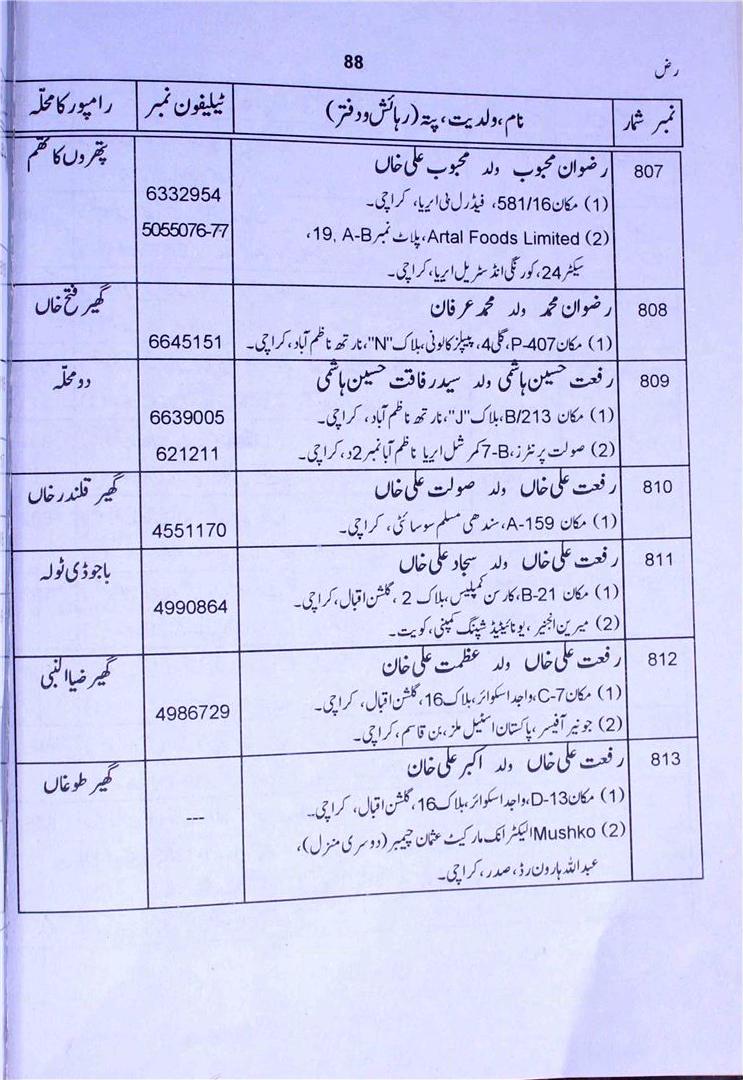 88
رض
نمبر شمار	نام، ولدیت، پتہ (رہائش و دفتر)	ٹیلیفون نمبر	رامپور کا محلّہ
807	رضوان محبوب ولد محبوب علی خاں	پتھروں کا تھم
(1) مکان 581/16، فیڈرل بی ایریا، کراچی۔	6332954
(2) Artal Foods Limited، پلاٹ نمبر 19, A-B،	5055076-77
سیکٹر 24، کورنگی انڈسٹریل ایریا، کراچی۔
808	رضوان محمد ولد محمد عرفان	گھیر فتح خاں
(1) مکان P-407، گلی 4، پیپلز کالونی، بلاک "N"، نارتھ ناظم آباد، کراچی۔	6645151
809	رفعت حسین ہاشمی ولد سید رفاقت حسین ہاشمی	دو محلّہ
(1) مکان B/213، بلاک "J"، نارتھ ناظم آباد، کراچی۔	6639005
(2) صولت پرنٹرز، 7-B کمرشل ایریا ناظم آباد نمبر 2، کراچی۔	621211
810	رفعت علی خاں ولد صولت علی خاں	گھیر قلندر خاں
(1) مکان A-159، سندھی مسلم سوسائٹی، کراچی۔	4551170
811	رفعت علی خاں ولد سجاد علی خاں	باجوڈی ٹولہ
(1) مکان B-21، کارسن کمپلیس، بلاک 2، گلشن اقبال، کراچی۔	4990864
(2) میرین انجنیر، یونائیٹیڈ شپنگ کمپنی، کویت۔
812	رفعت علی خاں ولد عظمت علی خان	گھیر ضیا النبی
(1) مکان C-7، واجد اسکوائر، بلاک 16، گلشن اقبال، کراچی۔	4986729
(2) جونیر آفیسر، پاکستان اسٹیل ملز، بن قاسم، کراچی۔
813	رفعت علی خاں ولد اکبر علی خان	گھیر طوغاں
(1) مکان D-13، واجد اسکوائر، بلاک 16، گلشن اقبال، کراچی۔	---
(2) Mushko الیکٹرانک مارکیٹ عثمان چیمبر (دوسری منزل)،
عبداللہ ہارون رڈ، صدر، کراچی۔